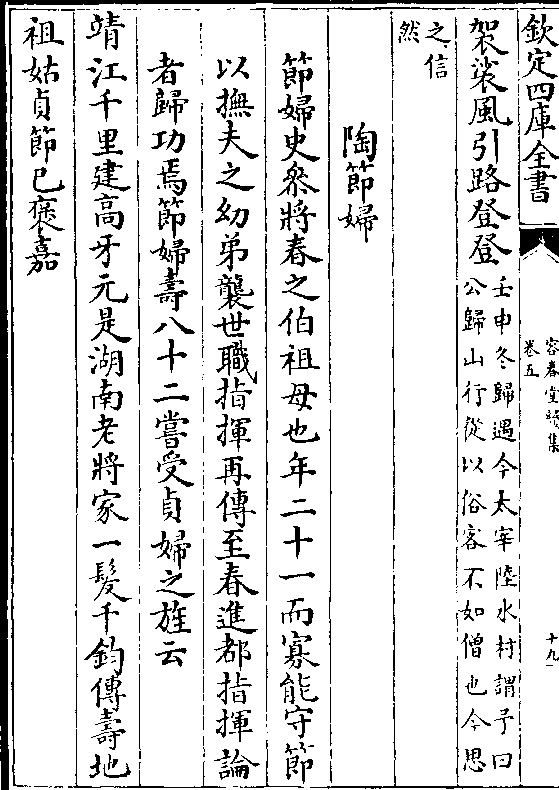 欽定四庫全書
容春堂續集
卷五
十九
袈裟風引路登登
壬申冬歸遇今太宰陸水村謂予曰
公歸山行從以俗客不如僧也今思
之信
然
陶節婦
節婦史叅將春之伯祖母也年二十一而寡能守節
以撫夫之幼弟襲世職指揮再傳至春進都指揮論
者歸功焉節婦壽八十二嘗受貞婦之旌云
靖江千里建高牙元是湖南老將家一髮千鈞傳壽地
祖姑貞節已褒嘉